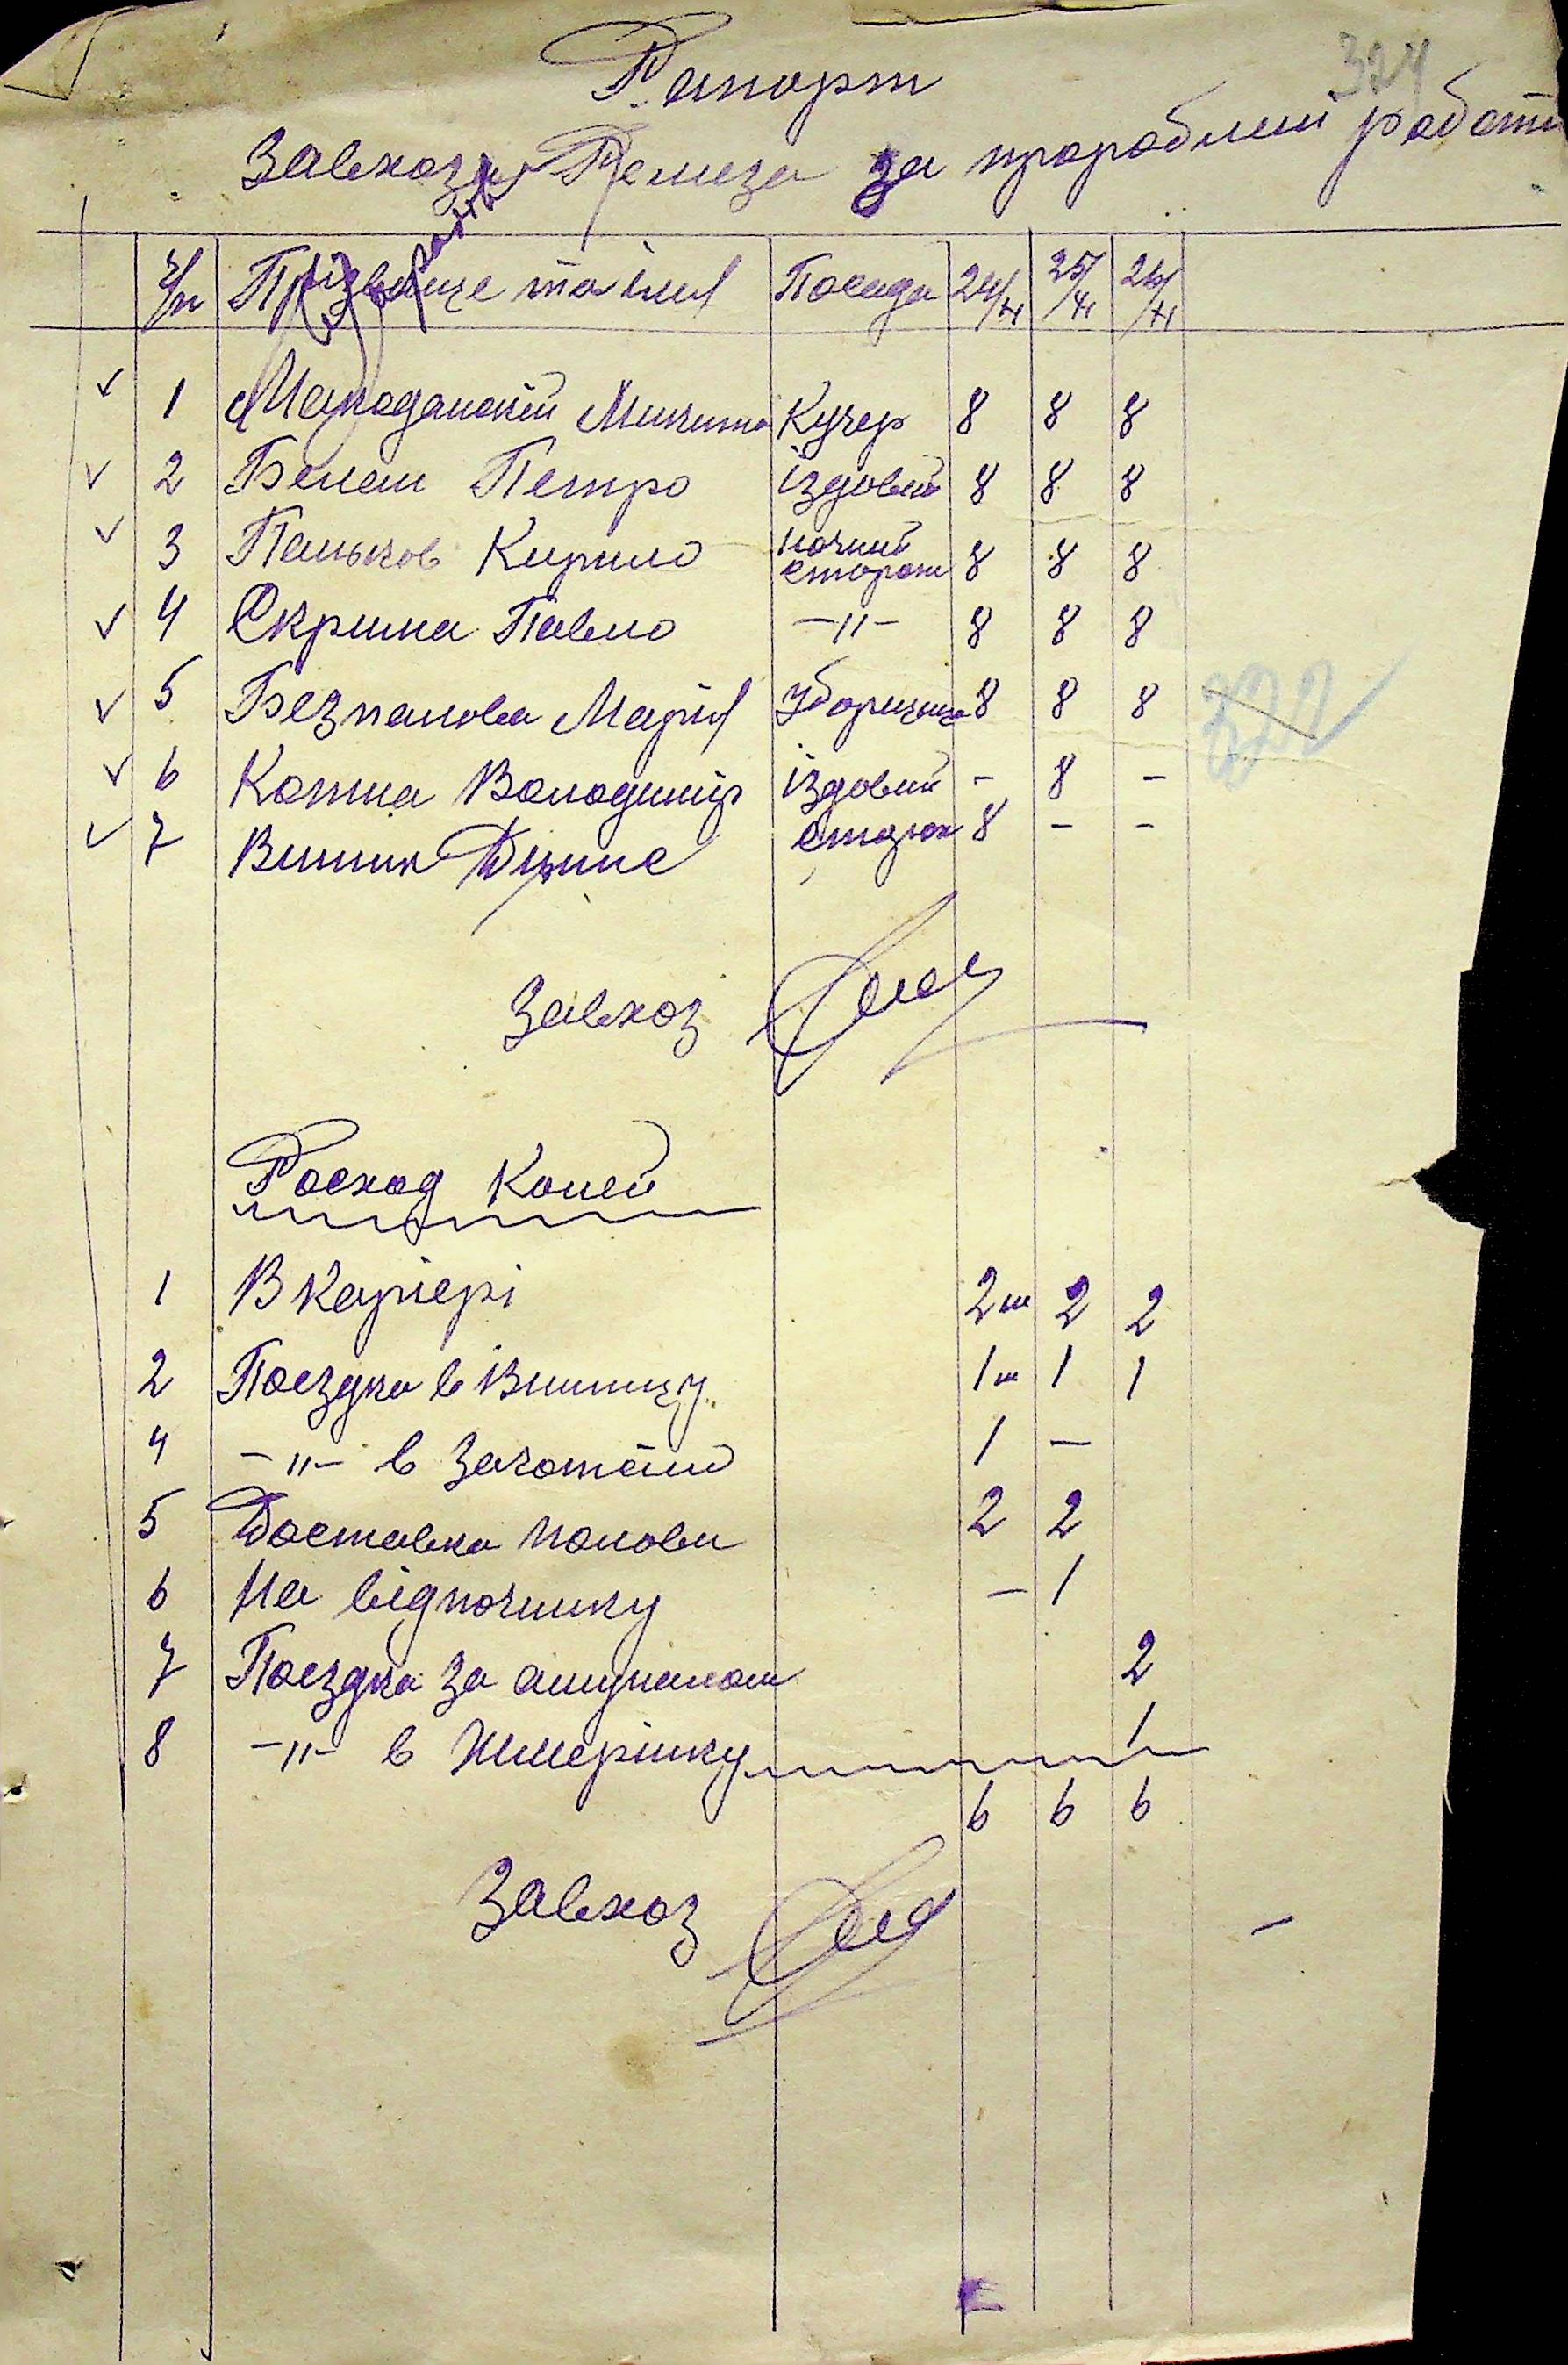 324
Рапорт
Завхоза Ремеза за пророблені работи
Ч/п Прізвище та імя Посада 24/XI 25/XI 26/XI
✓ 1 Микита Кучер 8 8 8
✓ 2 Белаш Петро їздовий 8 8 8
✓ 3 Паньков Кирило ночний сторож 8 8 8
✓ 4 Скрипка Павло -〃- 8 8 8
✓ 5 Безпалова Марія Уборщиця 8 8 8
322
✓ 6 Володимир їздовий - 8 -
✓ 7 Винник сторож 8 - -
Завхоз
Росход Коней
1 В Карїері 2ш 2 2
2 Поездка в Винницу 1ш 1 1
4 -〃- в 1 -
5 Доставка полови 2 2
6 На відпочинку - 1
7 Поездка за 2
8 -〃- в Жмерінку 1
6 6 6
Завхоз